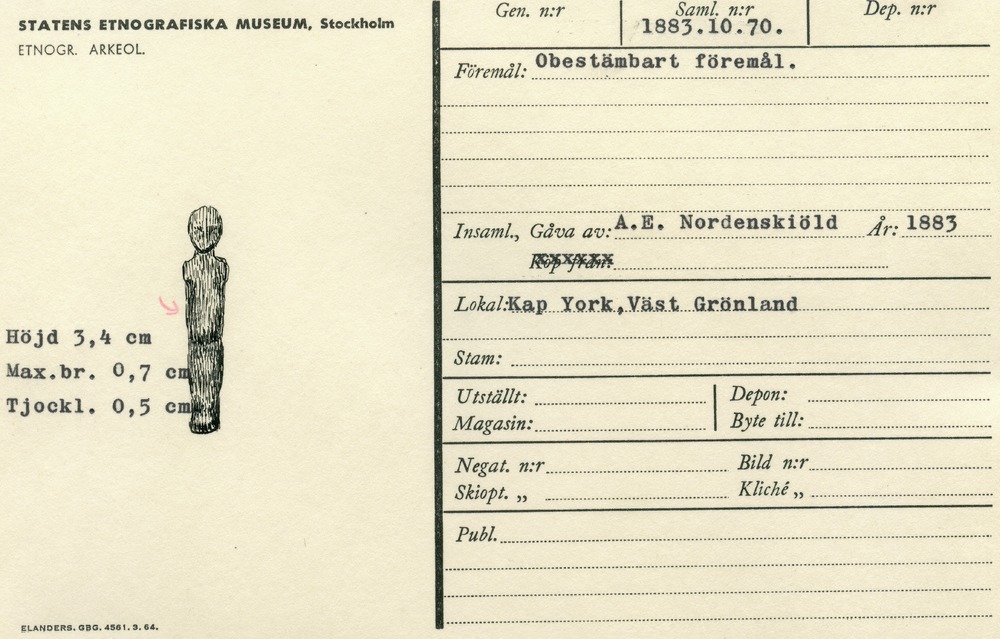 STATENS ETNOGRAFISKA MUSEUM, Stockholm
ETNOGR. ARKEOL.
Höjd 3,4 cm
Max.br. 0,7 cm
Tjockl. 0,5 cm
ELANDERS. GBG. 4561. 3. 64.
Gen. n:r Saml. n:r Dep. n:r
1883.10.70.
Föremål: Obestämbart föremål.
Insaml., Gåva av: A.E. Nordenskiöld År: 1883
Köp från:
Lokal: Kap York, Väst Grönland
Stam:
Utställt: Depon:
Magasin: Byte till:
Negat. n:r Bild n:r
Skiopt. „ Kliché „
Publ.